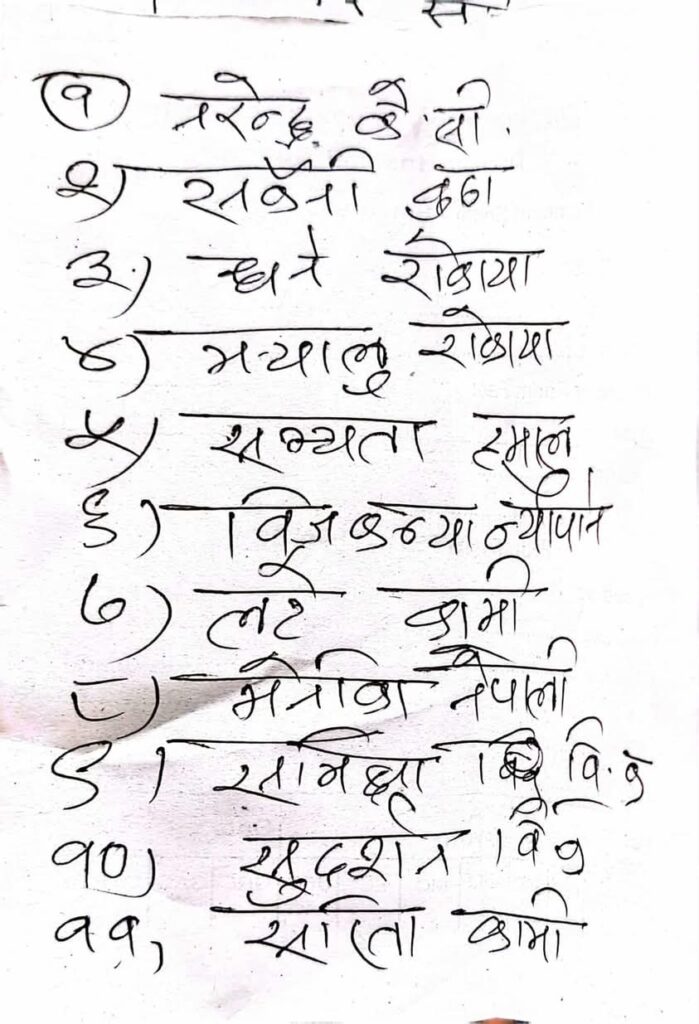 १ नरेन्द्र के.सी.
२) कठा
३.) छत्रे रोकाया
४) मन्यालु रोकाया
५) सभ्यता हमाल
६) कन्या न्यौपाने
७) लटे कामी
८) नेपाली
९) समिक्षा वि.क
१०) सुदर्शन वि क
११, सरिता कामी